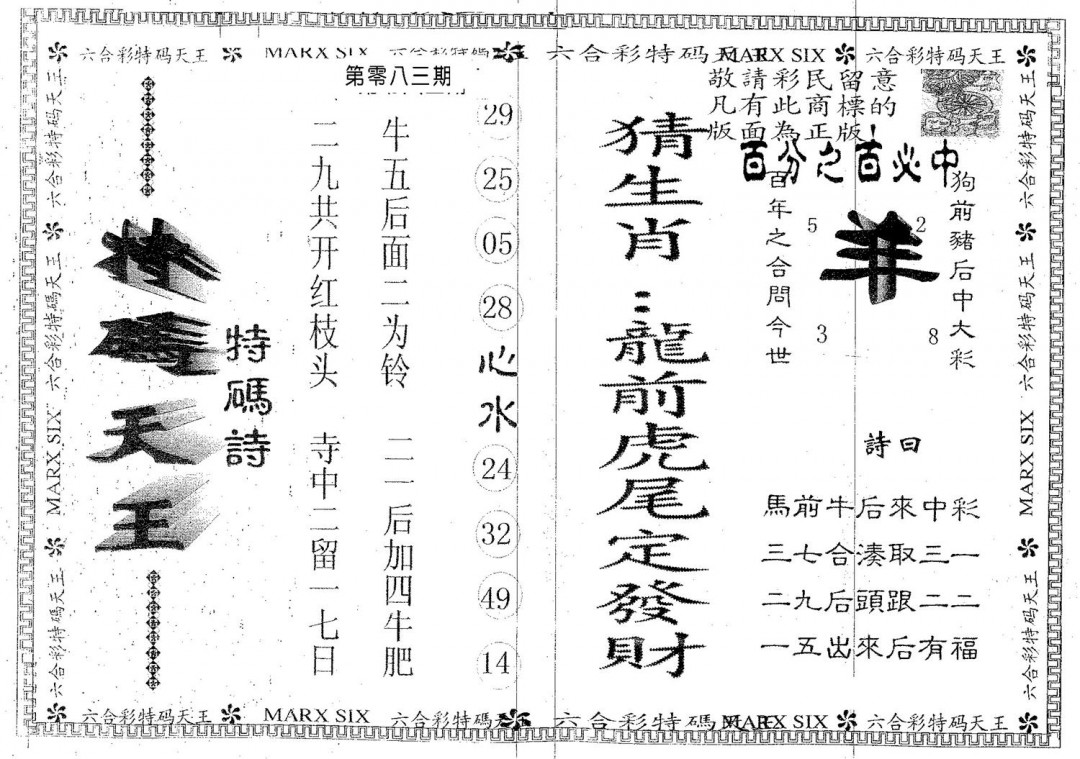 六合彩特码天王 MARX SIX 六合彩特碼天王 六合彩特码天王 MARX SIX 六合彩特码天王
第零八三期
敬請彩民留意
凡有此商標的
版面為正版!
百分之百必中
狗前豬后中大彩
羊
5 2
3 8
百年之合問今世
詩曰
馬前牛后來中彩
三七合湊取三一
二九后頭跟二二
一五出來后有福
猜生肖:龍前虎尾定發財
29
25
05
28
心水
24
32
49
14
牛五后面二为铃 二一后加四牛肥
二九共开红枝头 寺中二留一七日
特碼詩
特碼天王
六合彩特码天王 MARX SIX 六合彩特码天王 六合彩特码天王
六合彩特码天王 六合彩特码天王 MARX SIX 六合彩特码天王
六合彩特码天王 MARX SIX 六合彩特碼天王 六合彩特码 MARX SIX 六合彩特码天王